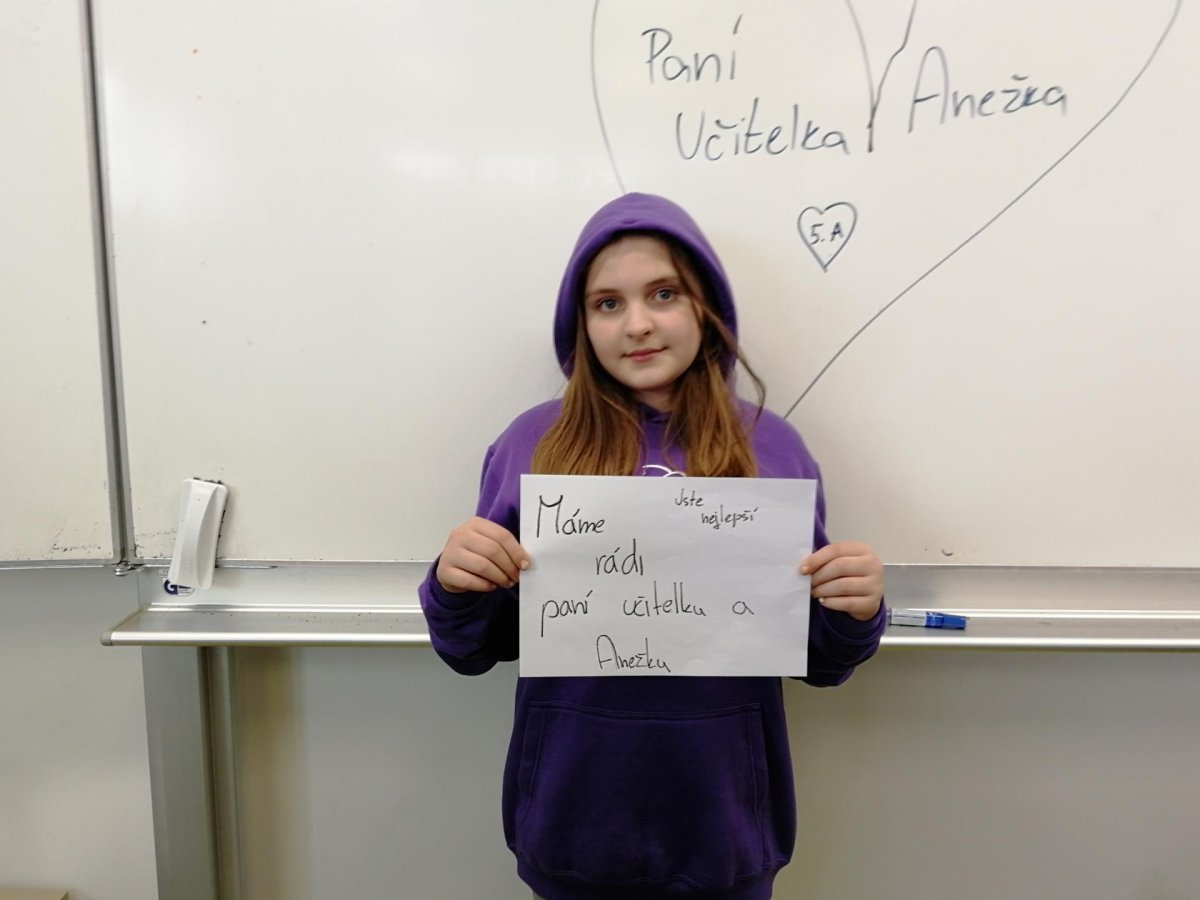 Paní
Učitelka
Anežka
5.A
Máme
Jste
nejlepší
rádi
paní učitelku a
Anežku